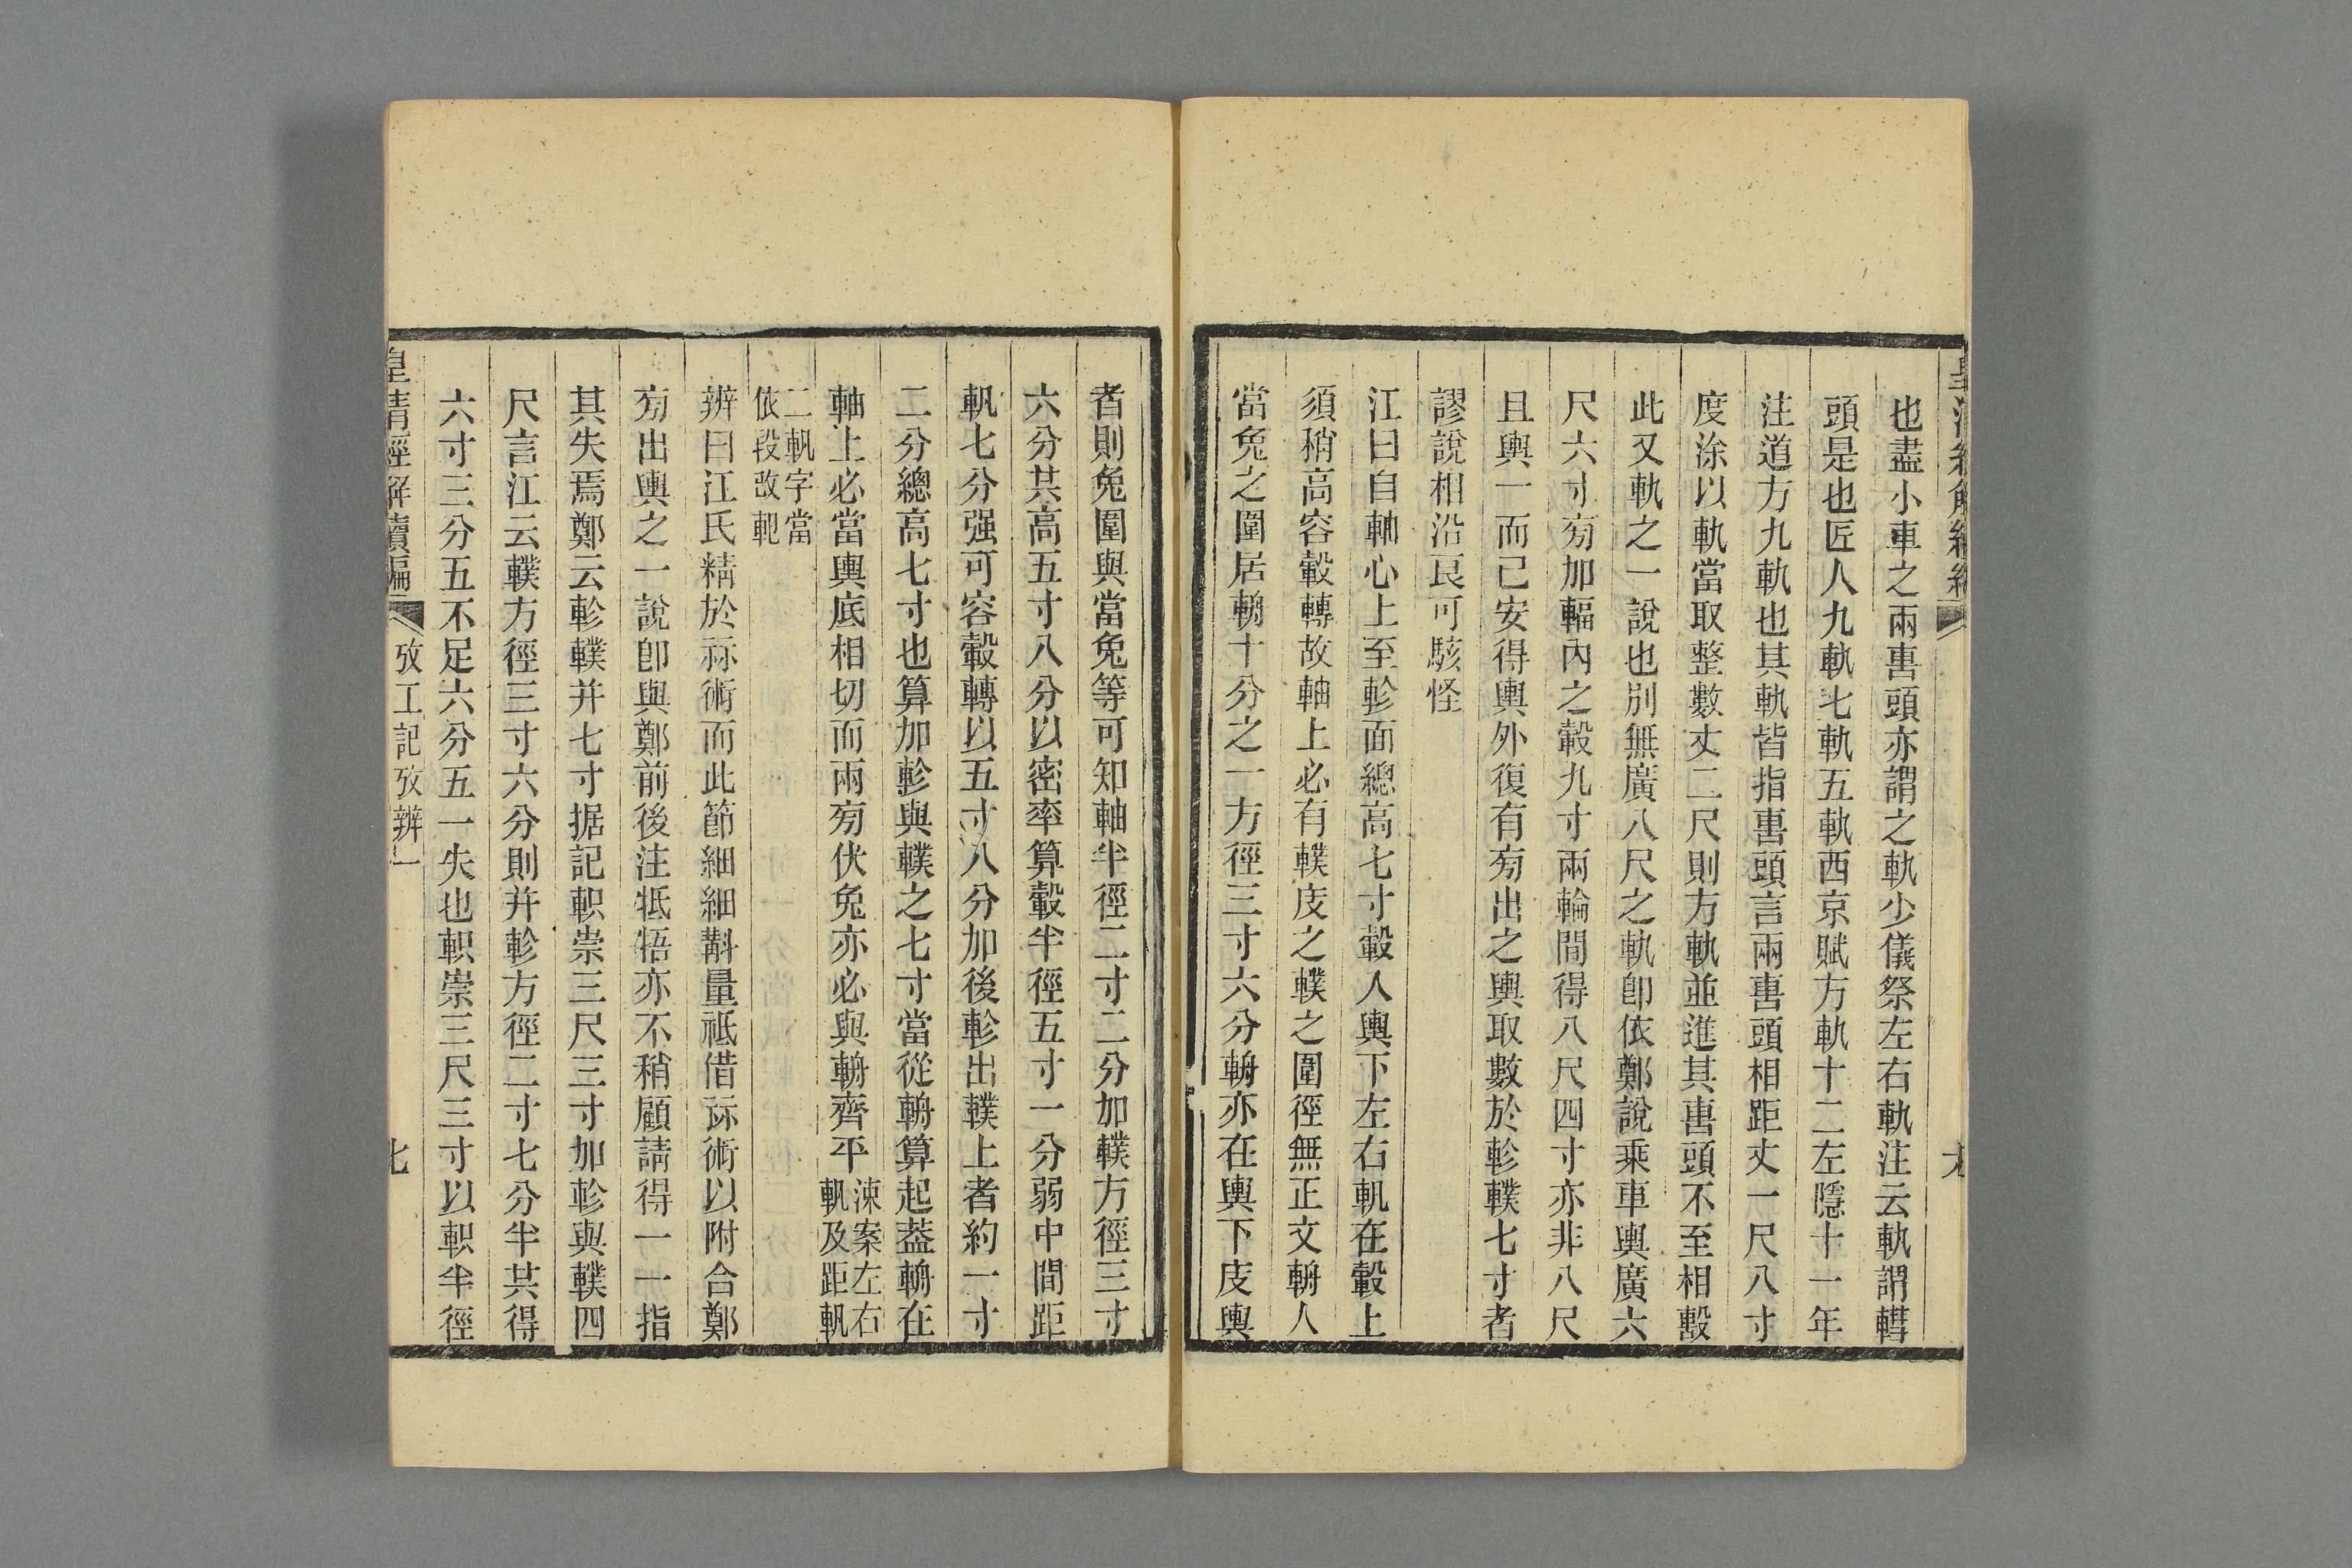 也盡小車之兩軎頭亦謂之軌少儀祭左右軌注云軌謂轊
頭是也匠人九軌七軌五軌西京賦方軌十二左隱十一年
注道方九軌也其軌皆指軎頭言兩軎頭相距丈一尺八寸
度涂以軌當取整數丈二尺則方軌並進其軎頭不至相轚
此又軌之一說也別無廣八尺之軌卽依鄭說乘車輿廣六
尺六寸㫄加輻內之轂九寸兩輪閒得八尺四寸亦非八尺
且輿一而已安得輿外復有㫄出之輿取數於軫轐七寸者
謬說相沿良可駭怪
江曰自軸心上至軫面總高七寸轂人輿下左右軓在轂上
須稍高容轂轉故軸上必有轐庋之轐之圍徑無正文輈人
當兔之圍居輈十分之一方徑三寸六分輈亦在輿下庋輿
者則兔圍與當兔等可知軸半徑二寸二分加轐方徑三寸
六分共高五寸八分以密率算轂半徑五寸一分弱中閒距
軓七分强可容轂轉以五寸八分加後軫出轐上者約一寸
二分總高七寸也算加軫與轐之七寸當從輈算起葢輈在
軸上必當輿底相切而兩㫄伏兔亦必與輈齊平涑案左右軓及距軓
二軓字當依段改䡈
辨曰江氏精於祘術而此節細細斠量祗借祘術以附合鄭
㫄出輿之一說卽與鄭前後注牴牾亦不稍顧請得一一指
其失焉鄭云軫轐并七寸据記軹崇三尺三寸加軫與轐四
尺言江云轐方徑三寸六分則并軫方徑二寸七分半共得
六寸三分五不足六分五一失也軹崇三尺三寸以軹半徑
皇淸經解續編
攷工記攷辨一
七